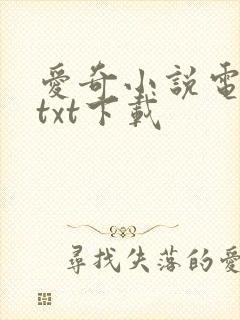 愛奇小説電
txt下載
尋找失落的愛